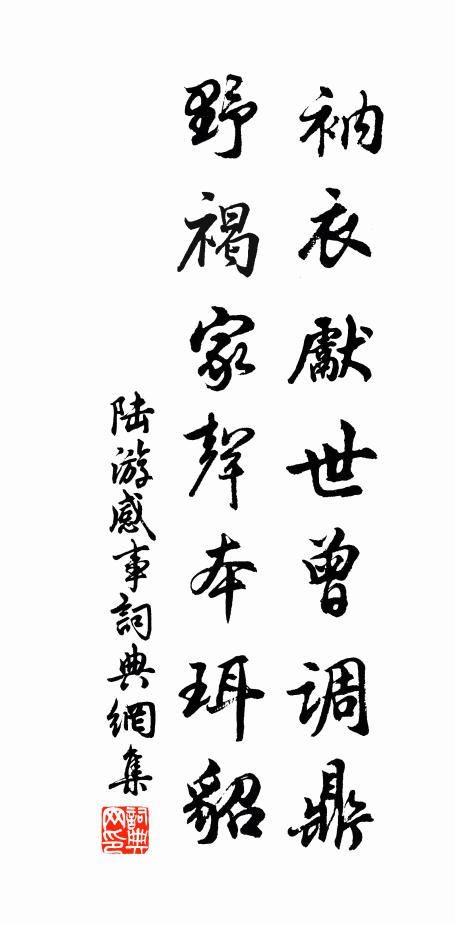 衲衣獻世曾调鼎
野褐家聲本珥貂
陆游感事詞典網集
詞典网印